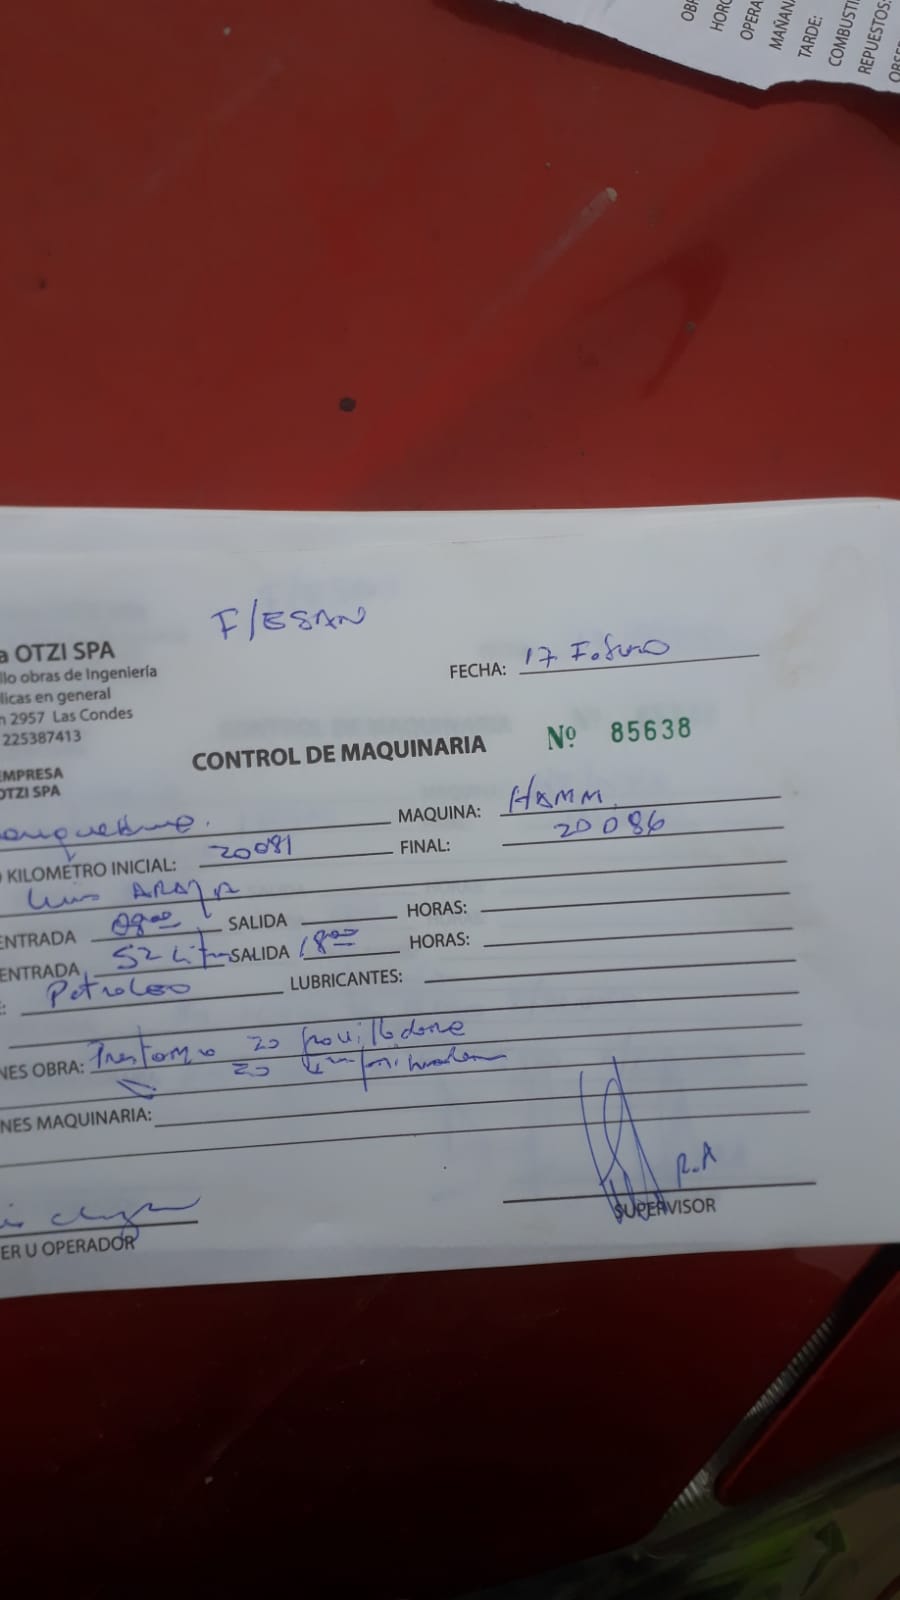 OBR
HORO
OPERA
MAÑAN
TARDE:
COMBUSTI
REPUESTOS:
OBSE
F/ESAN
a OTZI SPA
llo obras de Ingeniería
licas en general
n 2957 Las Condes
225387413
FECHA: 17
CONTROL DE MAQUINARIA Nº 85638
EMPRESA
OTZI SPA
MAQUINA: HAMM
KILOMETRO INICIAL: 20081 FINAL: 20086
Luis ARAYA
ENTRADA 0800 SALIDA HORAS:
ENTRADA 52 SALIDA 1800 HORAS:
: Petroleo LUBRICANTES:
NES OBRA: 20
20
NES MAQUINARIA:
R.A
ER U OPERADOR SUPERVISOR